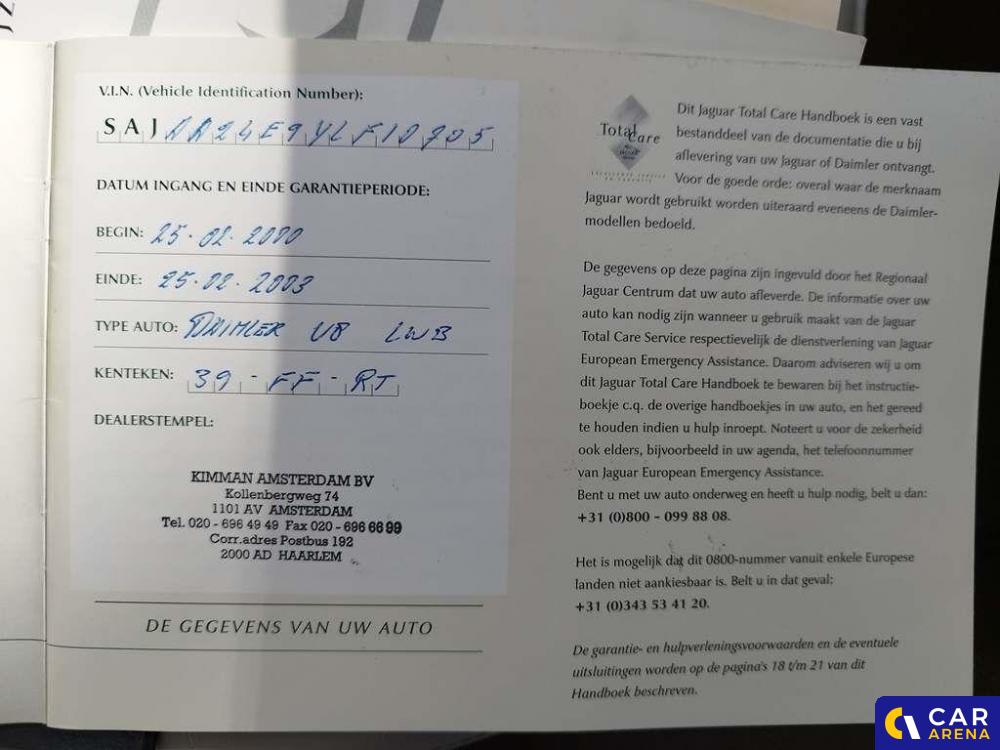 V.I.N. (Vehicle Identification Number):
SAJAA24E9YLF10705
DATUM INGANG EN EINDE GARANTIEPERIODE:
BEGIN: 25.02.2000
EINDE: 25.02.2003
TYPE AUTO: DAIMLER V8 LWB
KENTEKEN: 39-FF-RT
DEALERSTEMPEL:
KIMMAN AMSTERDAM BV
Kollenbergweg 74
1101 AV AMSTERDAM
Tel. 020 - 696 49 49 Fax 020 - 696 66 99
Corr.adres Postbus 192
2000 AD HAARLEM
DE GEGEVENS VAN UW AUTO
Total Care
Dit Jaguar Total Care Handboek is een vast
bestanddeel van de documentatie die u bij
aflevering van uw Jaguar of Daimler ontvangt.
Voor de goede orde: overal waar de merknaam
Jaguar wordt gebruikt worden uiteraard eveneens de Daimler-
modellen bedoeld.
De gegevens op deze pagina zijn ingevuld door het Regionaal
Jaguar Centrum dat uw auto afleverde. De informatie over uw
auto kan nodig zijn wanneer u gebruik maakt van de Jaguar
Total Care Service respectievelijk de dienstverlening van Jaguar
European Emergency Assistance. Daarom adviseren wij u om
dit Jaguar Total Care Handboek te bewaren bij het instructie-
boekje c.q. de overige handboekjes in uw auto, en het gereed
te houden indien u hulp inroept. Noteert u voor de zekerheid
ook elders, bijvoorbeeld in uw agenda, het telefoonnummer
van Jaguar European Emergency Assistance.
Bent u met uw auto onderweg en heeft u hulp nodig, belt u dan:
+31 (0)800 - 099 88 08.
Het is mogelijk dat dit 0800-nummer vanuit enkele Europese
landen niet aankiesbaar is. Belt u in dat geval:
+31 (0)343 53 41 20.
De garantie- en hulpverleningsvoorwaarden en de eventuele
uitsluitingen worden op de pagina's 18 t/m 21 van dit
Handboek beschreven.
CAR
ARENA